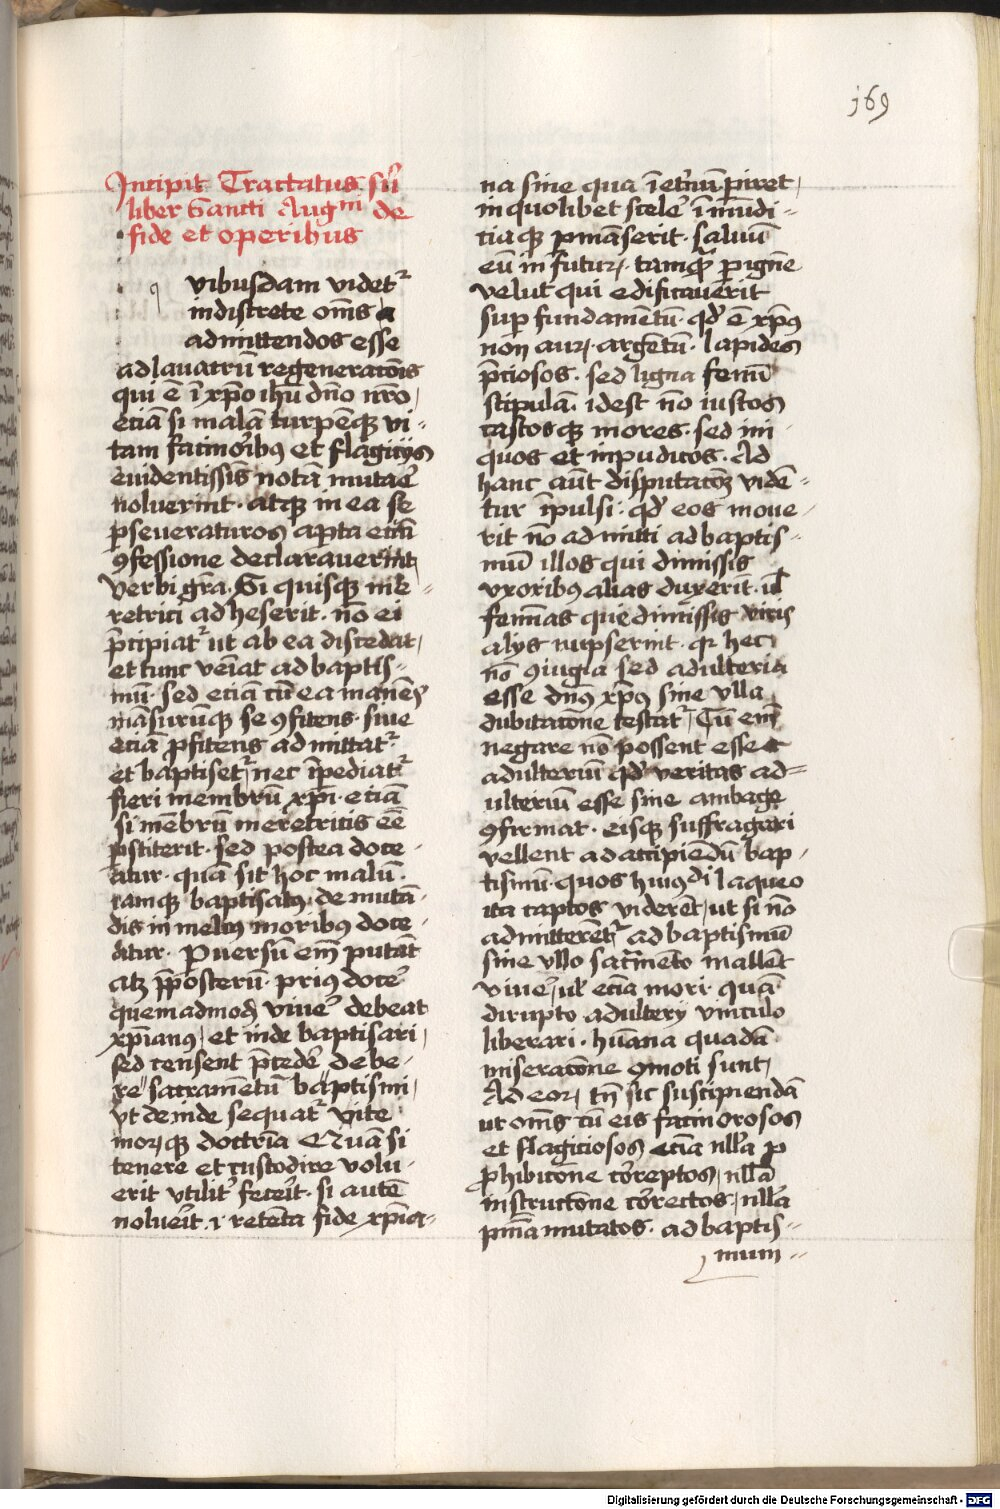 169
Incipit Tractatus siu̅
liber Sancti Augni de
fide et operibus
q vibusdam videtr
indiscrete om̅s
admittendos esse
ad lauacru̅ regenerato̅is
qui e̅ i̅ xp̅o ih̅u dn̅o nr̅o
ecia̅ si mala̅ turpe̅qꝫ vi-
tam facinorib9 et flagicijs
euidentissi̅s nota̅ mutar̅e
noluerint. atqꝫ in ea se
ꝑseueraturos aꝑta ecia̅
ꝯfessione declarauerint
verbi gr̅a. Si quisqꝫ me-
retrici adheserit. no̅ ei
p̅cipiatr ut ab ea discedat
et tunc ve̅iat ad baptis-
mu̅. sed ecia̅ cu̅ ea mane̅s
ma̅suru̅qꝫ se ꝯfitens. siue
ecia̅ ꝓfitens admittatr
et baptisetr nec i̅pediatr
fieri membru̅ xp̅i. ecia̅
si me̅bru̅ meretricis ee̅
ꝑstiterit. sed postea doce-
atur. qua̅ sit hoc malu̅.
iamqꝫ baptisat9. de muta̅-
dis in meli9 moribus doce-
atur. Puersu̅ em̅ puta̅t
atꝫ p̅posteru̅. pri9 docer̅e
quemadmodꝫ viuer̅e debeat
xp̅ian9, et inde baptisari,
sed censent p̅ceder̅e debe-
re sacrame̅tu̅ baptismi,
vt deinde sequatr vite
morꝝqꝫ doctri̅a Qua̅ si
tenere et custodire volu-
erit vtilitr̅ fecer̅it. si aute̅
noluer̅it. ⁊ rete̅ta fide xp̅ia-
na sine qua i̅ eter̅nu̅ ꝑiret,
in quolibet sceler̅e i̅mu̅di-
ciaqꝫ ꝑma̅serit. saluu̅
eu̅ in futurꝝ. tamq̅ꝫ ꝑ igne̅
velut qui edificauer̅it
suꝑ fundame̅tu̅. qd̅ e̅ xp̅9
non aurꝝ. arge̅tu̅. lapides
p̅ciosos. sed ligna fenu̅
stipula̅. idest no̅ iustos
castosqꝫ mores. sed ini-
quos et inpudicos. Ad
hanc au̅t disputato̅eꝫ vide̅-
tur i̅pulsi. qd̅ eos moue-
rit no̅ admitti ad baptis-
mu̅ illos qui dimissis
vxoribus alias duxerit. ul̅
femi̅as que dimissis viris
alijs nupserint. qꝛ hec
no̅ ꝯiugia sed adulteria
esse dn̅9 xp̅9 sine vlla
dubitato̅ne testatr, Cu̅ em̅
negare no̅ possent esse
adulteriu̅ qd̅ veritas ad-
ulteriu̅ esse sine ambage
ꝯfirmat. eisqꝫ suffragari
vellent ad accipie̅du̅ bap-
tismu̅. quos hui9di laqueo
ita captos vider̅et, ut si no̅
admitteret̅r ad baptismu̅
sine vllo sacr̅me̅to malle̅t
viuer̅e, ul̅ ecia̅ mori. qua̅
dirupto adulterij vinculo
liberari. hu̅ana quada̅
miserato̅ne ꝯmoti sunt,
Ad eorꝝ tn̅ sic suscipienda̅
ut om̅s cu̅ eis facinorosos
et flagiciosos ecia̅ null̅a ꝑ
ꝓhibico̅ne cor̅reptos, null̅a
instructo̅ne cor̅rectos, null̅a
pni̅a mutatos. ad baptis-
mum
Digitalisierung gefördert durch die Deutsche Forschungsgemeinschaft - DFG